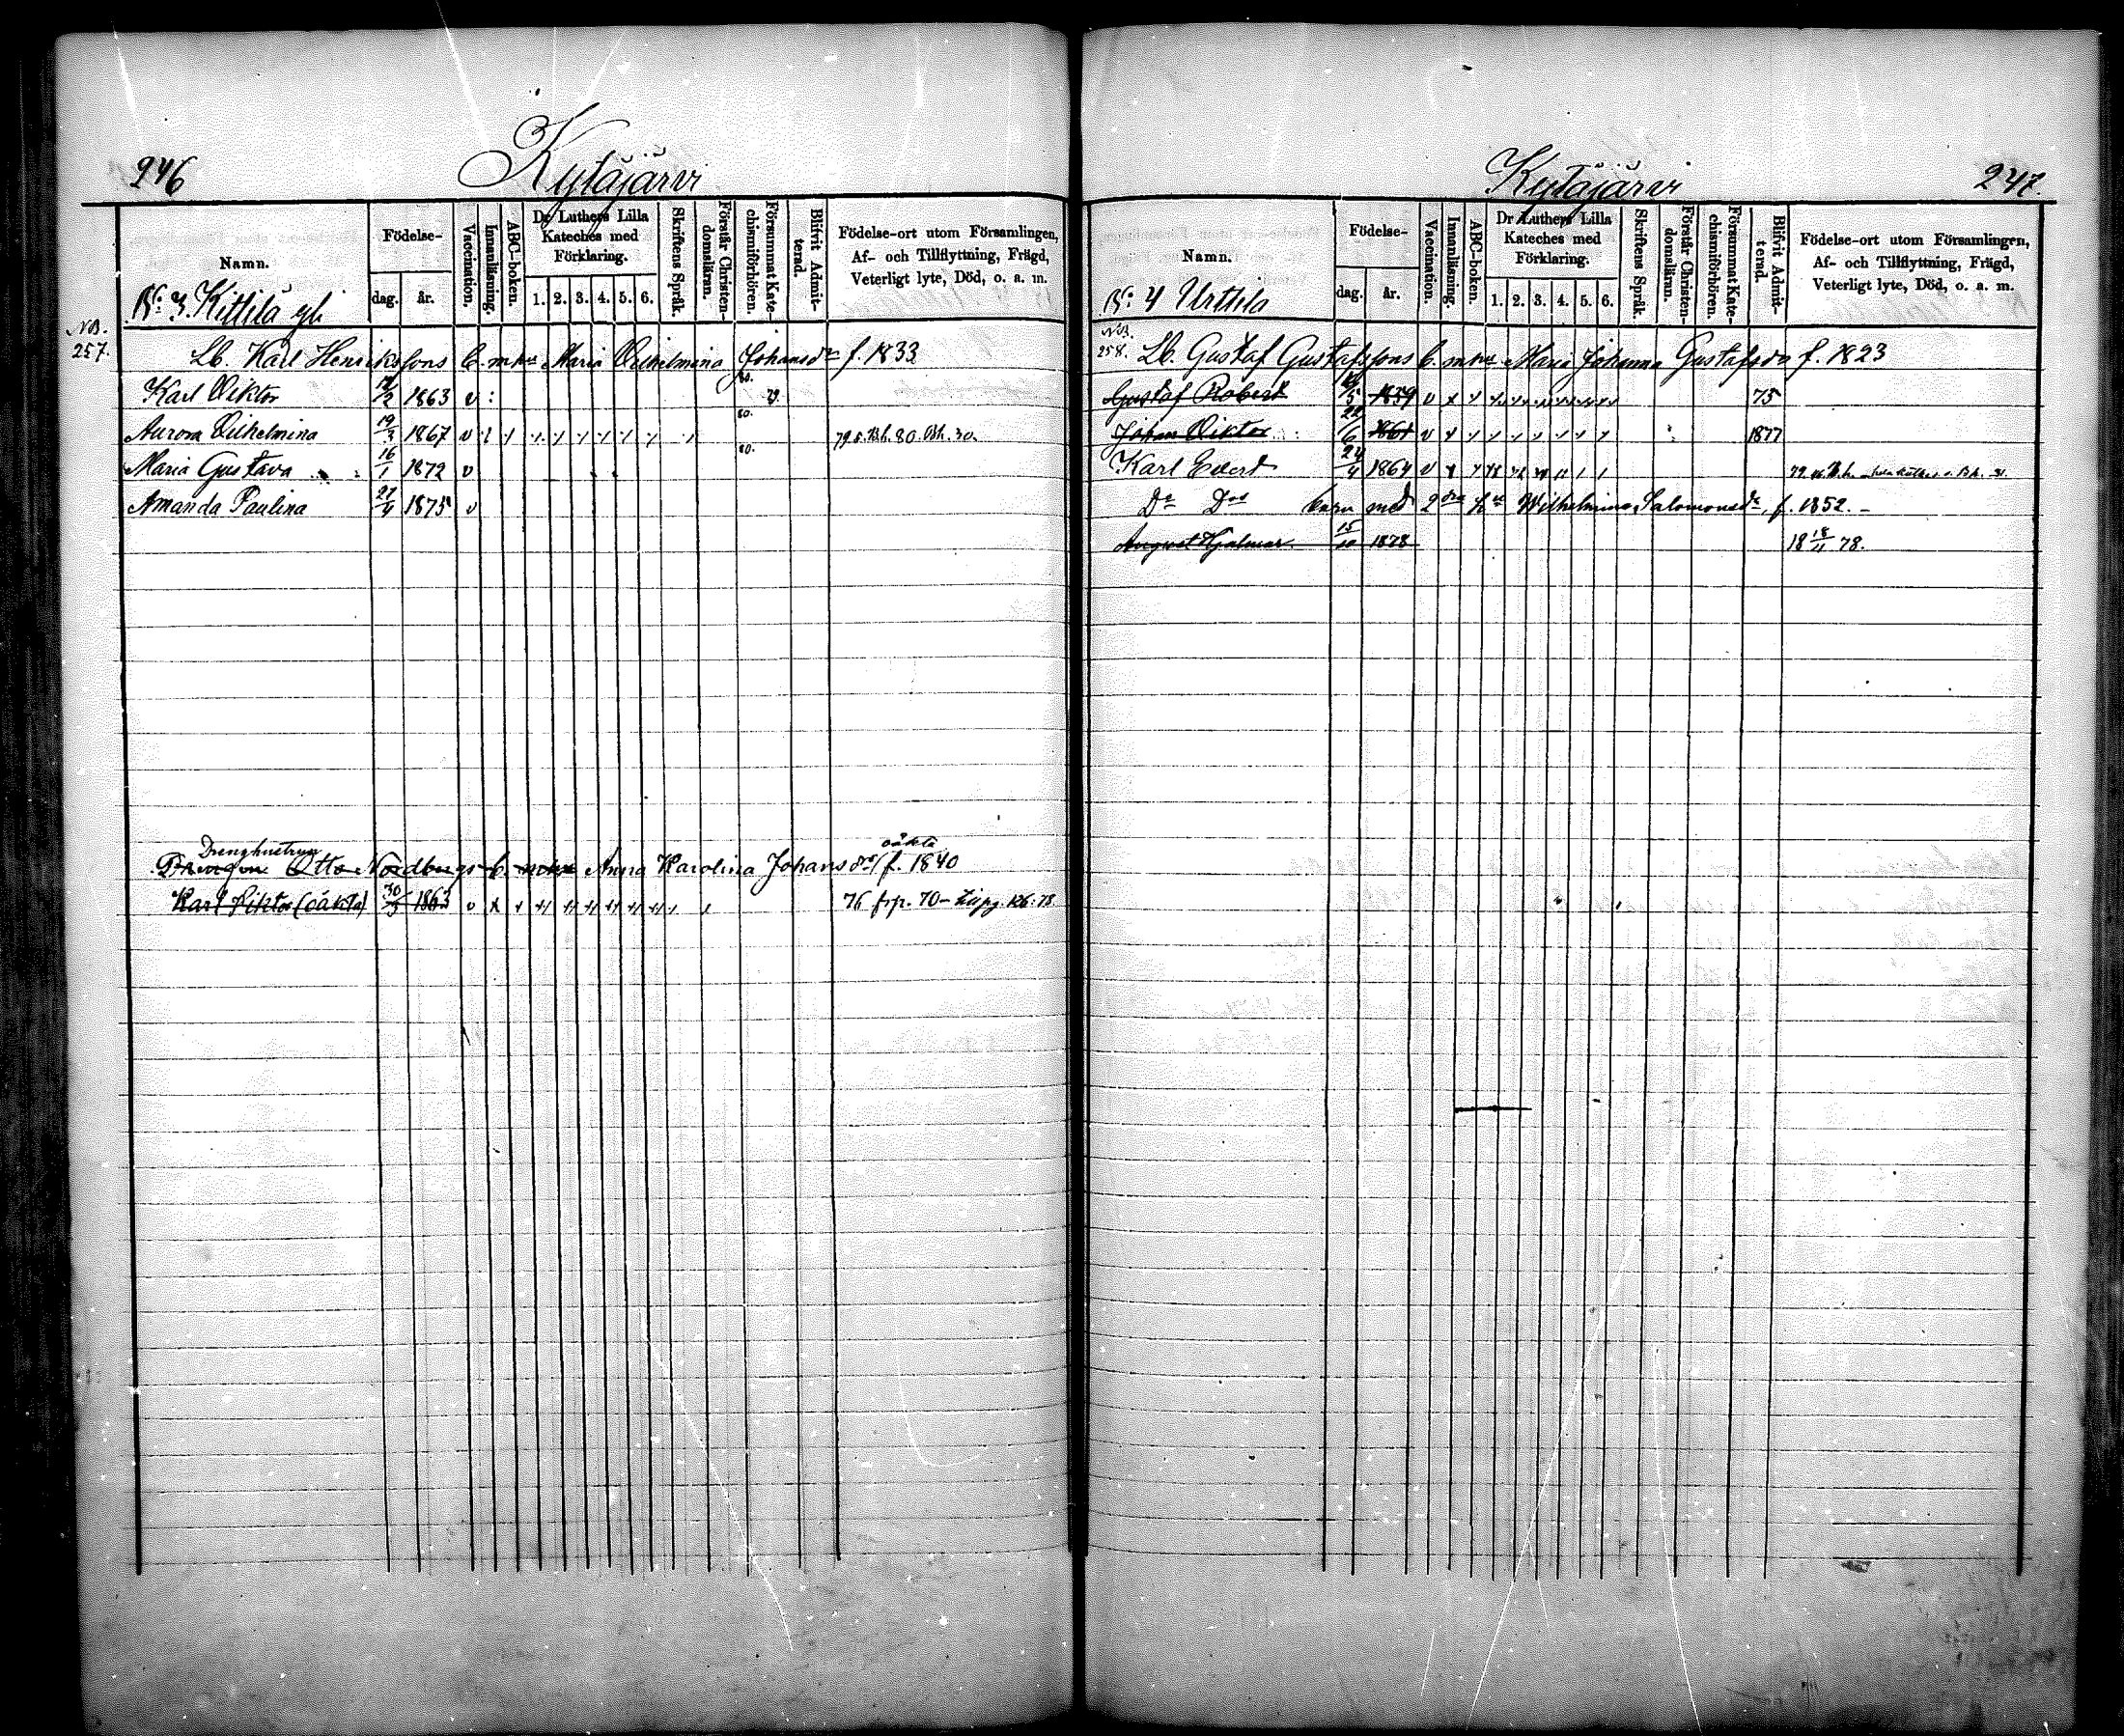 246
Kytäjärvi
Namn.
Födelse-
dag.
år.
Vaccination.
Innanläsning.
ABC-boken.
Dr Luthers Lilla
Kateches med
Förklaring.
1. 2. 3. 4. 5. 6.
Skriftens Språk.
Förstår Christen-
domsläran.
Försummat Kate-
chismiförhören.
Blifvit Admit-
terad.
Födelse-ort utom Församlingen,
Af- och Tillflyttning, Frägd,
Veterligt lyte, Död, o. a. m.
No: 3. Kittilä
NB.
257.
Lb. Karl Henrikssons b. m. hu Maria Wilhelmina Johansdr f. 1833
Karl Viktor 1863 v
Aurora Wilhelmina 19/3 1867 v 80.
Maria Gustava 16/1 1872 v 80.
Amanda Paulina 27/4 1875 v
Drenghustrun oäkta
Drengen Otto Nordbergs b. m. hu Anna Karolina Johansdr f. 1840
Karl Viktor (oäkta) 30/3 1863 v 76 frp. 70 - 126: 78
Kytäjärvi
247.
Namn.
Födelse-
dag.
år.
Vaccination.
Innanläsning.
ABC-boken.
Dr Luthers Lilla
Kateches med
Förklaring.
1. 2. 3. 4. 5. 6.
Skriftens Språk.
Förstår Christen-
domsläran.
Försummat Kate-
chismiförhören.
Blifvit Admit-
terad.
Födelse-ort utom Församlingen,
Af- och Tillflyttning, Frägd,
Veterligt lyte, Död, o. a. m.
No: 4 Urttila
NB.
258. Lb. Gustaf Gustafssons b. m. hu Maria Johanna Gustafsdr f. 1823
Gustaf Robert 1859 v 75
Johan Viktor 22/6 1861 v 1877
Karl Evert 24/4 1864 v
Do Dos barn med 2dra hu Wilhelmina Salomonsdr, f. 1852.
August Hjalmar 15/10 1878 18 18/11 78.